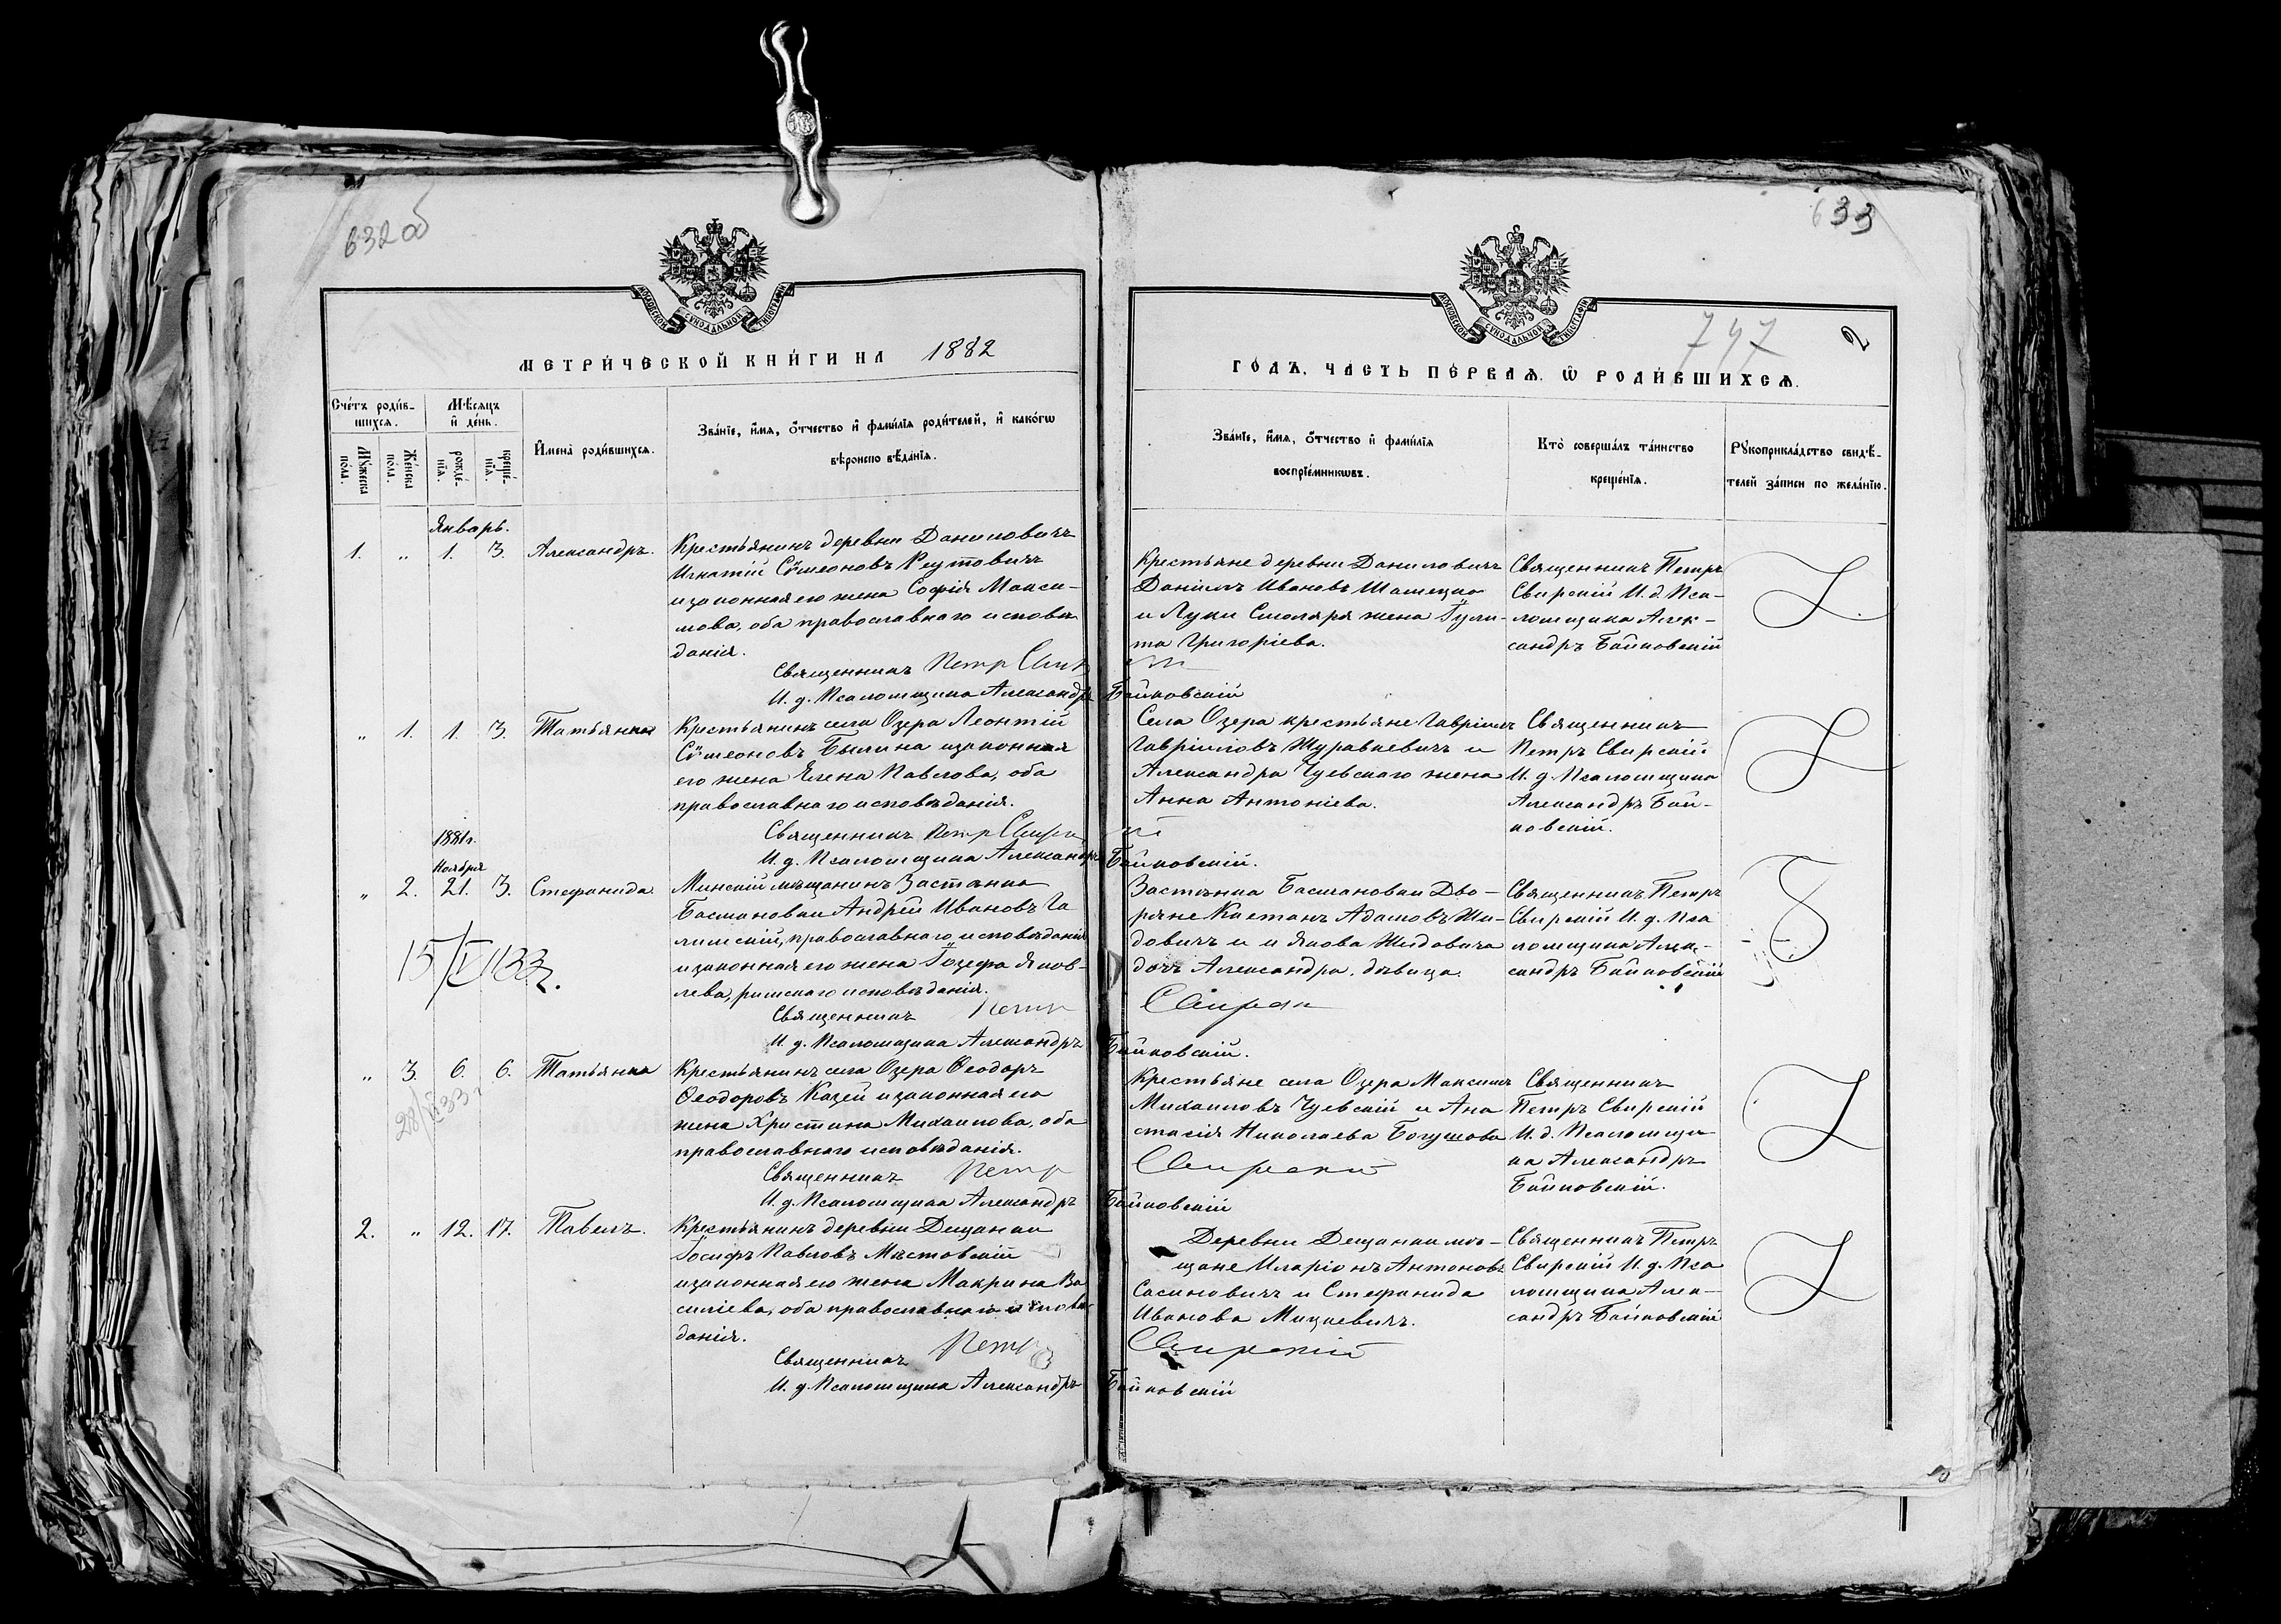 632об
633
747
2
МОСКОВСКОЙ СѴНОДАЛЬНОЙ ТИПОГРАФІИ
МОСКОВСКОЙ СѴНОДАЛЬНОЙ ТИПОГРАФІИ
МЕТРИ́ЧЕСКОЙ КНИ́ГИ НА 1882
ГОДЪ. ЧАСТЬ ПЕ́РВАЯ. Ѡ РОДИ́ВШИХСѦ.
Сче́тъ роди́в-
шихсѧ.
Мꙋ́жеска
по́ла.
Же́нска
по́ла.
Мѣ́сяцъ
и҆ де́нь.
рожде́-
нїѧ.
креще́-
нїѧ.
И҆мена̀ роди́вшихсѧ.
Зва́нїе, и҆́мѧ, ѻ҆́тчество и҆ фами́лїѧ роди́телей, и҆ како́гѡ
вѣроиспо вѣ́данїѧ.
Зва́нїе, и҆́мѧ, ѻ҆́тчество и҆ фами́лїѧ
воспрїе́мникѡвъ.
Кто̀ соверша́лъ та́инство
креще́нїѧ.
Рꙋкоприкла́дство свидѣ́-
телей за́писи по жела́нїю.
Январь.
1. „ 1. 3. Александръ.
Крестьянинъ деревни Даниловичъ
Игнатій Сѵмеоновъ Реутовичъ
и законная его жена Софія Макси-
мова, оба православнаго исповѣ
данія.
Священникъ Петр
И. д. Псаломщика Александръ Байковскій
Крестьяне деревни Даниловичъ
Даніилъ Ивановъ Шамецко
и Луки Смоляря жена Іули-
та Григоріева.
Священникъ Петръ
Свирскій И. д. Пса-
ломщика Алек-
сандръ Байковскій
„ 1. 1. 3. Татьянна
Крестьянинъ села Озера Леонтій
Сѵмеоновъ Былина и законная
его жена Елена Павлова, оба
православнаго исповѣданія.
Священникъ Петр
И. д. Псаломщика Александръ Байковскій.
Села Озера крестьяне Гавріилъ
Гавріиловъ Журавкевичъ и
Александра Чуевскаго жена
Анна Антоніева.
Священникъ
Петръ Свирскій
И. д. Псаломщика
Александръ Бай-
ковскій.
1881г.
Ноября
„ 2. 21. 3. Стефанида
Минскій мѣщанинъ Застѣнка
Басмановки Андрей Ивановъ Га
лимскій, православнаго исповѣданія
и законная его жена Іозефа Яков-
лева, римскаго исповѣданія.
Священникъ Петр
И. д. Псаломщика Александръ Байковскій.
Застѣнка Басмановки Дво-
ряне Каетанъ Адамовъ Жи-
довичъ и и Якова Жидовича
дочь Александра, дѣвица.
Свирск
Священникъ Петръ
Свирскій И. д. Пса
ломщика Алек-
сандръ Байковскій
„ 3. 6. 6. Татьянна
Крестьянинъ села Озера Ѳеодоръ
Ѳеодоровъ Казей и законная его
жена Христина Михаилова, оба
православнаго исповѣданія.
Священникъ Петр
И. д. Псаломщика Александръ Байковскій
Крестьяне села Озера Максимъ
Михаиловъ Чуевскій и Ана
стасія Николаева Богушова
Свирскій
Священникъ
Петръ Свирскій
И. д. Псаломщи
ка Александръ
Байковскій.
2. „ 12. 17. Павелъ.
Крестьянинъ деревни Дещанки
Іосифъ Павловъ Мѣстовскій
и законная его жена Макрина Ва
силіева, оба православнаго исповѣ
данія.
Священникъ Петръ
И. д. Псаломщика Александръ Байковскій
Деревни Дещанки мѣ-
щане Иларіонъ Антоновъ
Сасиновичъ и Стефанида
Иванова Мицкевичъ.
Свирскій
Священникъ Петръ
Свирскій И. д. Пса
ломщика Алек-
сандръ Байковскій